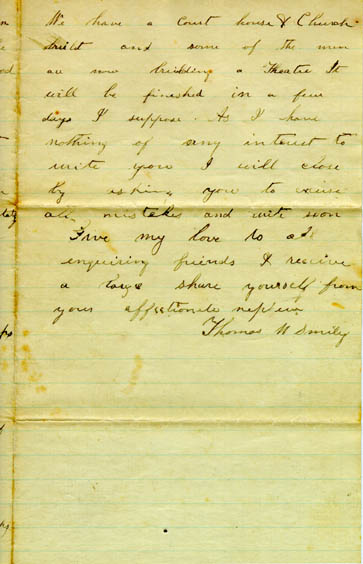 We have a Court house & Church
built and some of the men
are now building a Theatre It
will be finished in a few
days I suppose. As I have
nothing of any interest to
write you I will close
by asking you to excuse
all mistakes and write soon
Give my love to all
enquiring friends & receive
a large share yourself from
your affectionate nephew
Thomas M Smiley